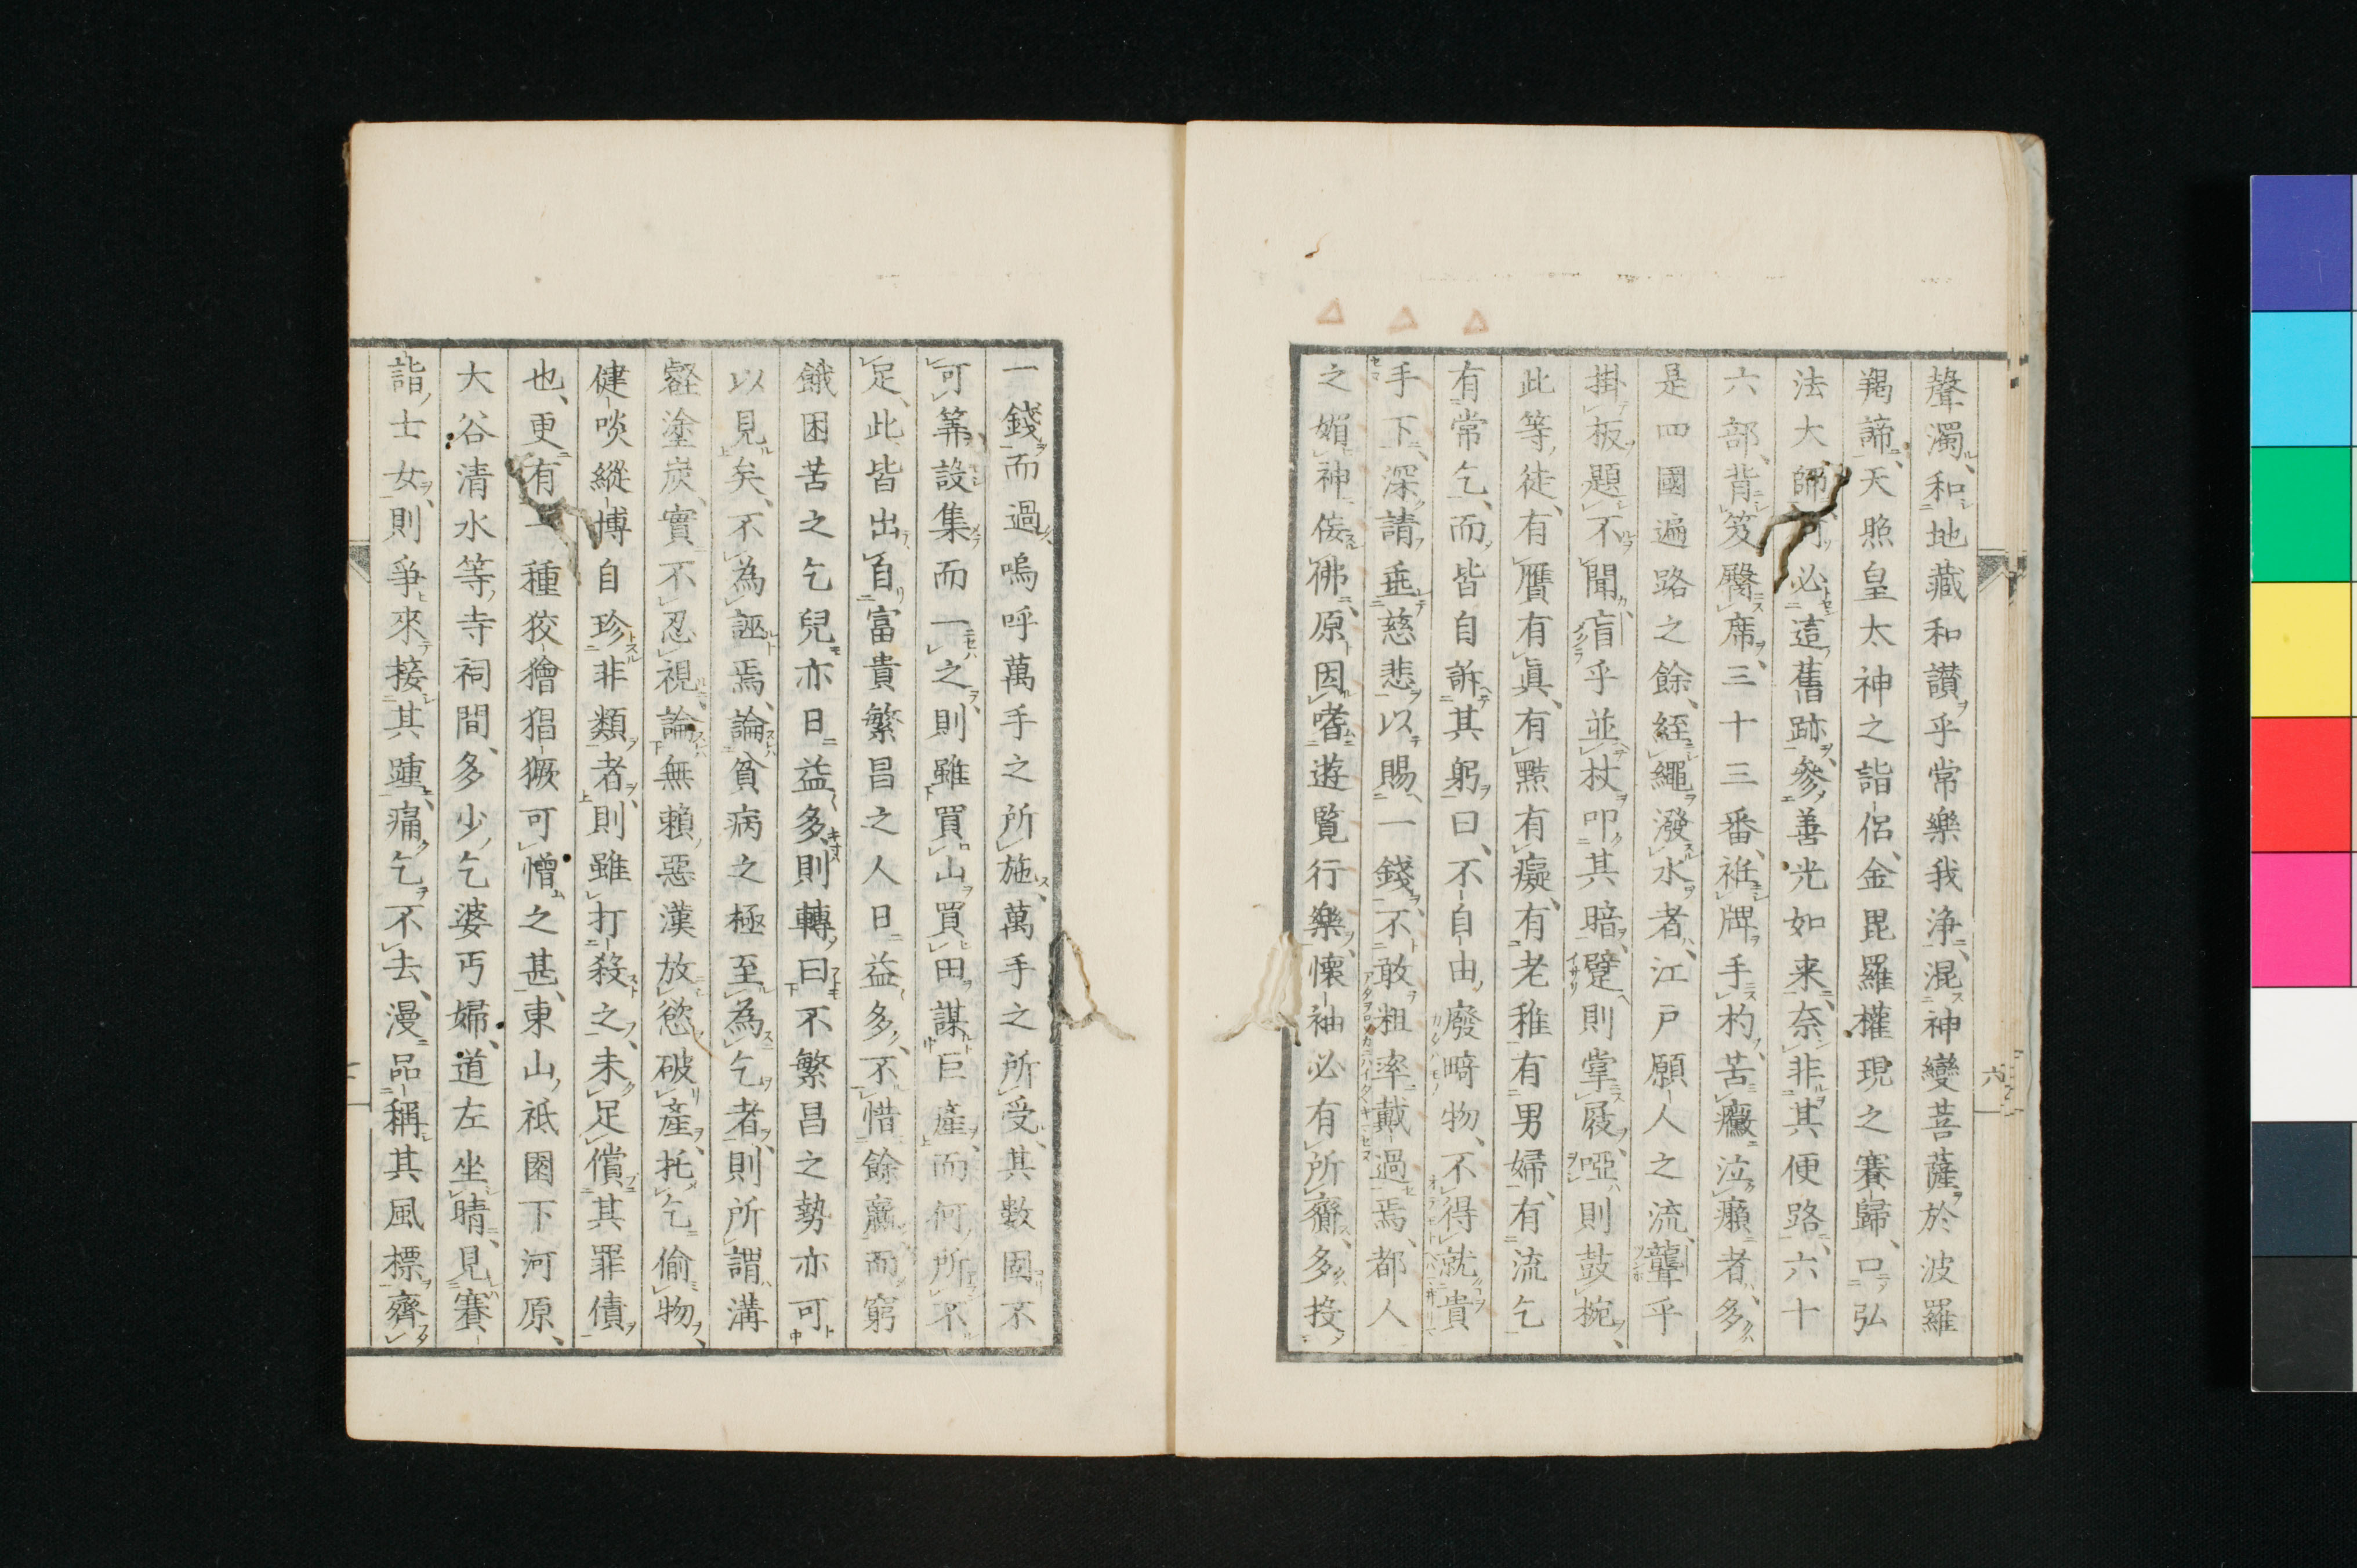 聲濁和地藏和讃乎常樂我浄混神變菩薩於波羅
羯諦天照皇太神之詣侶金毘羅權現之賽歸口弘
法大師何必這舊跡參善光如来奈非其便路六十
六部背笈臀席三十三番袵牌手杓苦癥泣癩者多
是四國遍路之餘絰繩潑水者江戸願人之流聾乎
掛板題不聞盲乎並杖叩其暗躄則掌屐啞則鼓椀
此等徒有贋有眞有黠有癡有老稚有男婦有流乞
有常乞而皆自訴其躬曰不自由廢畸物不得就貴
手下深請垂慈悲以賜一錢不敢粗率戴過焉都人
之媚神佞佛原因嗜遊覧行樂懷袖必有所齎多投
六
一錢而過嗚呼萬手之所施萬手之所受其數固不
可筭設集而一之則雖買山買田謀巨產而何所不
足此皆出自富貴繁昌之人日益多不惜餘贏而窮
餓困苦之乞兒亦日益多則轉曰不繁昌之勢亦可
以見矣不為誣焉論貧病之極至為乞者則所謂溝
壑塗炭實不忍視論無賴惡漢放慾破產托乞偷物
健啖縱博自珍非類者則雖打殺之未足償其罪債
也更有一種狡獪猖獗可憎之甚東山祇園下河原
大谷清水等寺祠間多少乞婆丐婦道左坐晴見賽
詣士女則爭來接其踵痛乞不去漫品稱其風標齊